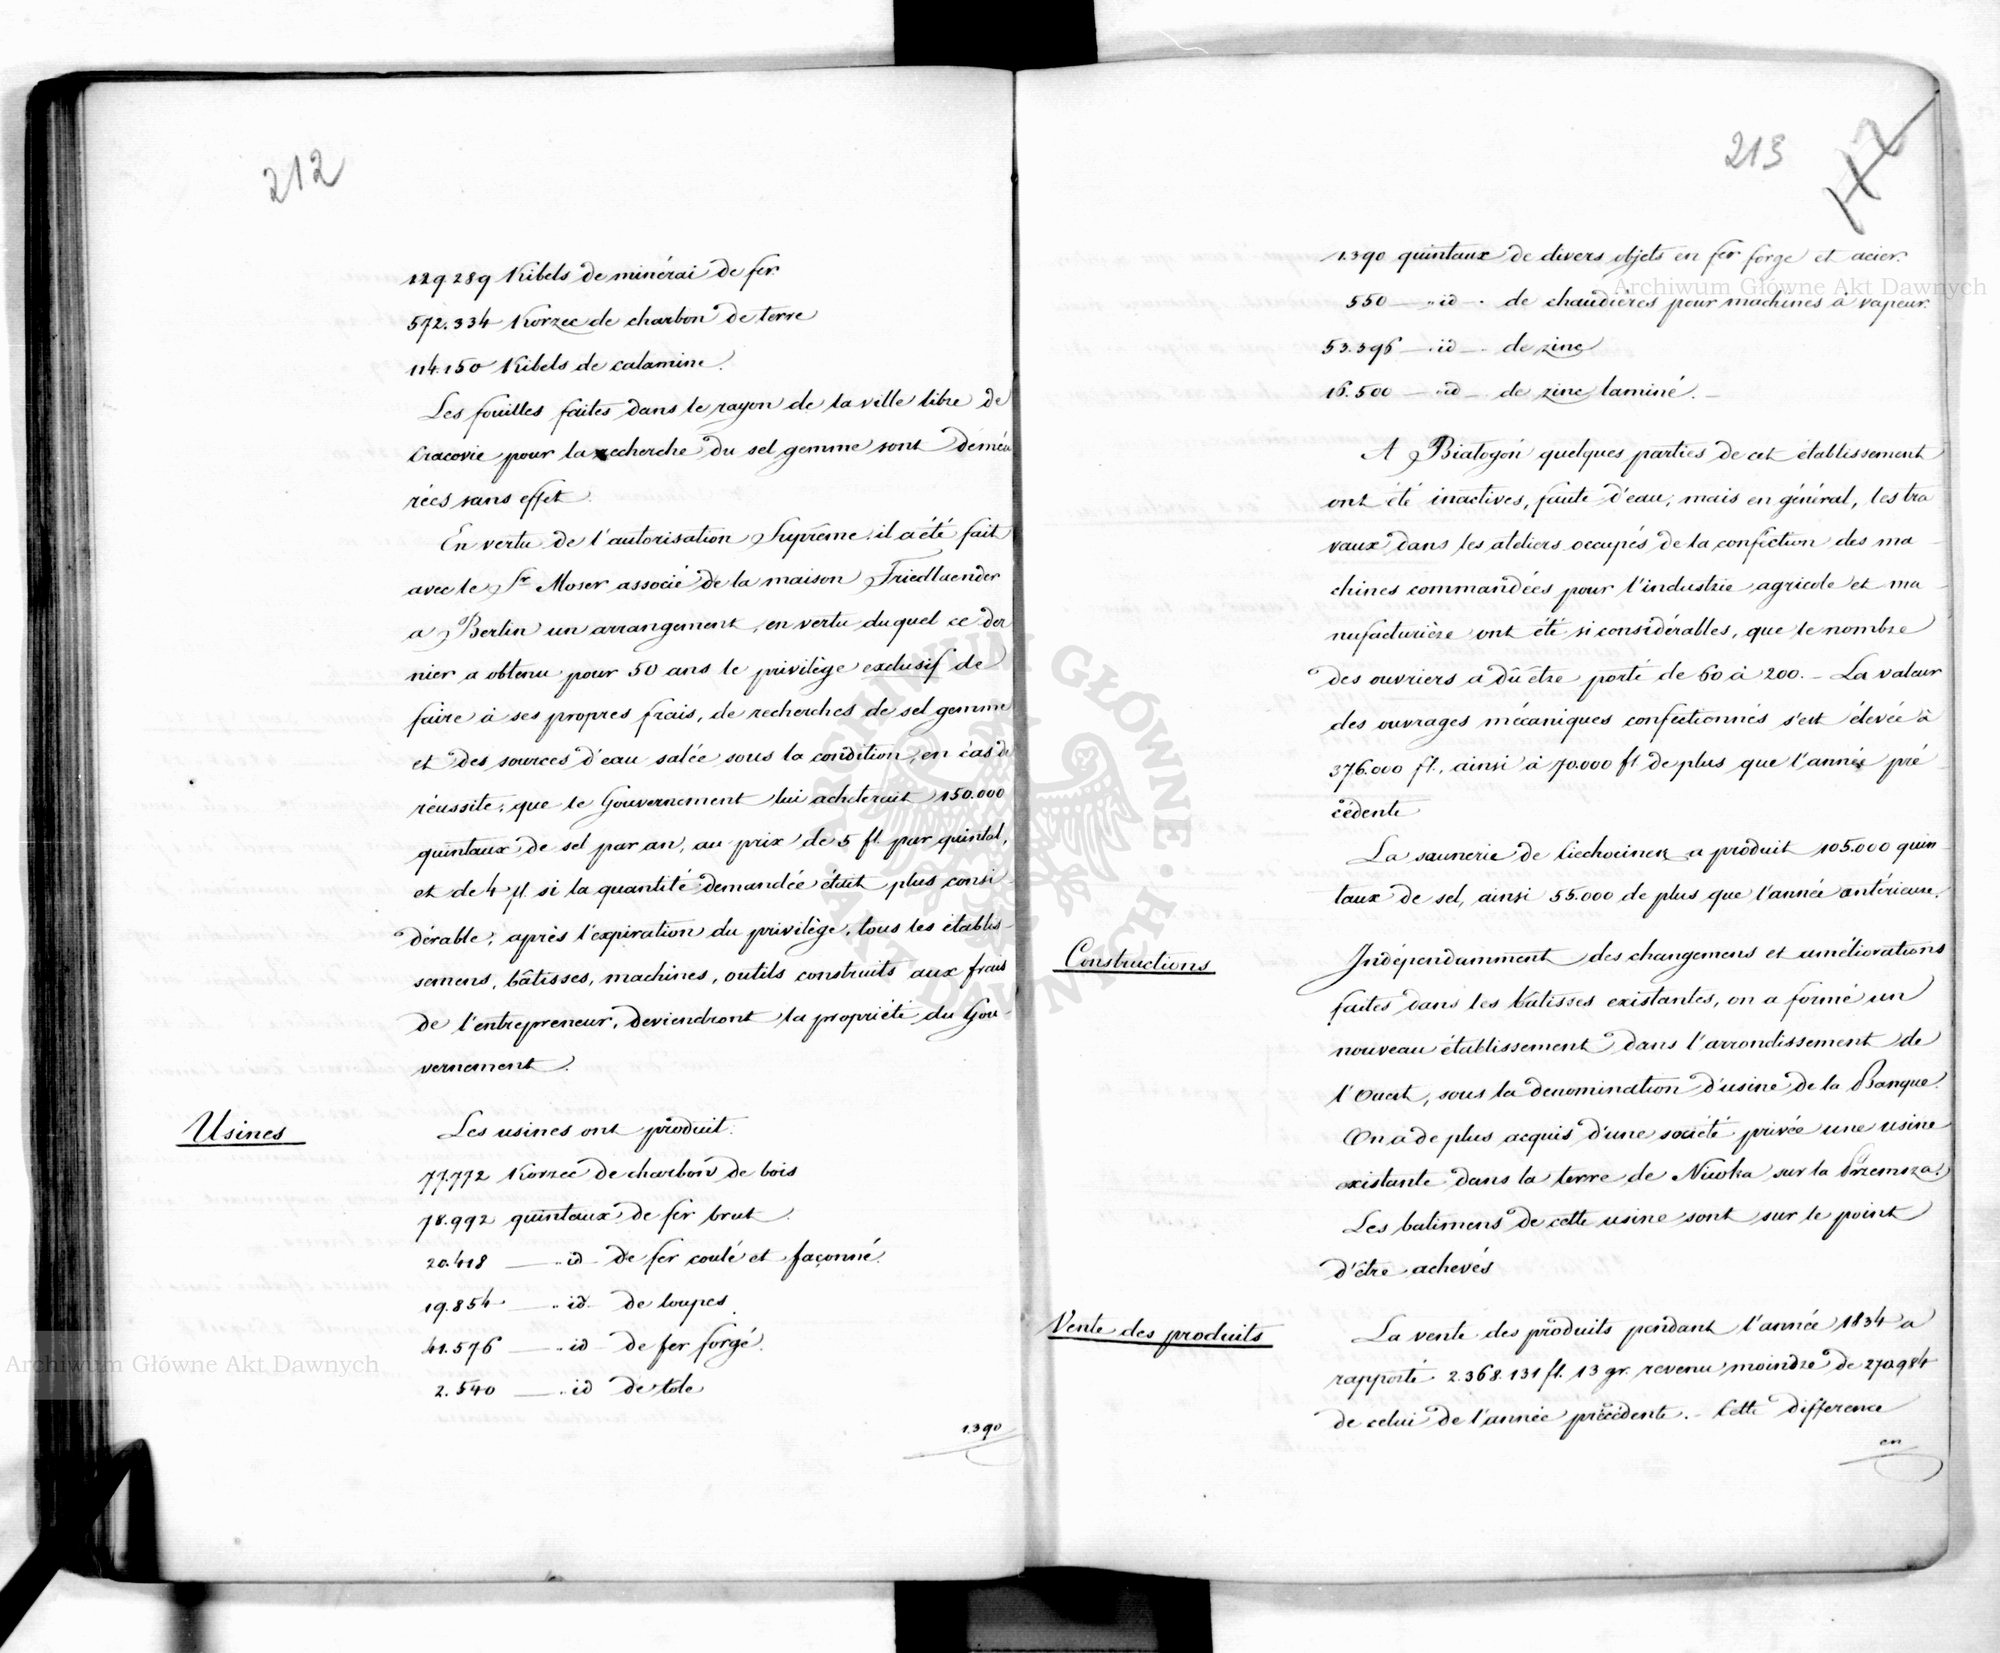 212
129.289 Kibels de minérai de fer.
572.334 Korzec de charbon de terre
114.150 Kibels de calamine.
Les fouilles faites dans le rayon de la ville libre de
Cracovie pour la recherche du sel gemme sont déméu
rées sans effet.
En vertu de l'autorisation Suprême il a été fait
avec le Sr. Moser associé de la maison Friedlaender
a Berlin un arrangement, en vertu duquel ce der
nier a obtenu pour 50 ans le privilège exclusif de
faire à ses propres frais, de recherches de sel gemme
et des sources d'eau salée sous la condition, en cas de
réussite, que le Gouvernement lui acheterait 150.000
quintaux de sel par an, au prix de 5 fl. par quintal,
et de 4 fl. si la quantité demandée était plus consi
dérable; après l'expiration du privilège, tous les établis-
semens, bâtisses, machines, outils construits aux frais
de l'entrepreneur, deviendront la propriété du Gou-
vernement.
Usines
Les usines ont produit:
77.772 Korzec de charbon de bois
78.992 quintaux de fer brut.
20.418 — id — de fer coulé et façonné.
19.854 — id — de loupes.
41.576 — id — de fer forgé.
2.540 — id de tole
1.390
213
1.390 quintaux de divers objets en fer forgé et acier.
550 — id — de chaudières pour machines à vapeur.
53.396 — id — de zinc
16.500 — id — de zinc laminé. —
A Białogón quelques parties de cet établissement
ont été inactives, faute d'eau; mais en général, les tra
vaux dans les ateliers occupés de la confection des ma
chines commandées pour l'industrie agricole et ma
nufacturière ont été si considérables, que le nombre
des ouvriers a dû être porté de 60 à 200. — La valeur
des ouvrages mécaniques confectionnés s'est élevée à
376.000 fl., ainsi à 70.000 fl de plus que l'année pré
cédente
La saunerie de Ciechocinek a produit 105.000 quin
taux de sel, ainsi 55.000 de plus que l'année antérieure.
Constructions
Indépendamment des changemens et améliorations
faites dans les bâtisses existantes, on a formé un
nouveau établissement dans l'arrondissement de
l'Ouest, sous la denomination d'usine de la Banque.
On a de plus acquis d'une société privée une usine
existante dans la terre de Niwka sur la Przemsza.
Les batimens de cette usine sont sur le point
d'être achevés
Vente des produits
La vente des produits pendant l'année 1834 a
rapporté 2.368.131 fl. 13 gr. revenu moindre de 270.984
de celui de l'année précédente. — Cette difference
en
Archiwum Główne Akt Dawnych
Archiwum Główne Akt Dawnych
ARCHIWUM GŁÓWNE AKT DAWNYCH